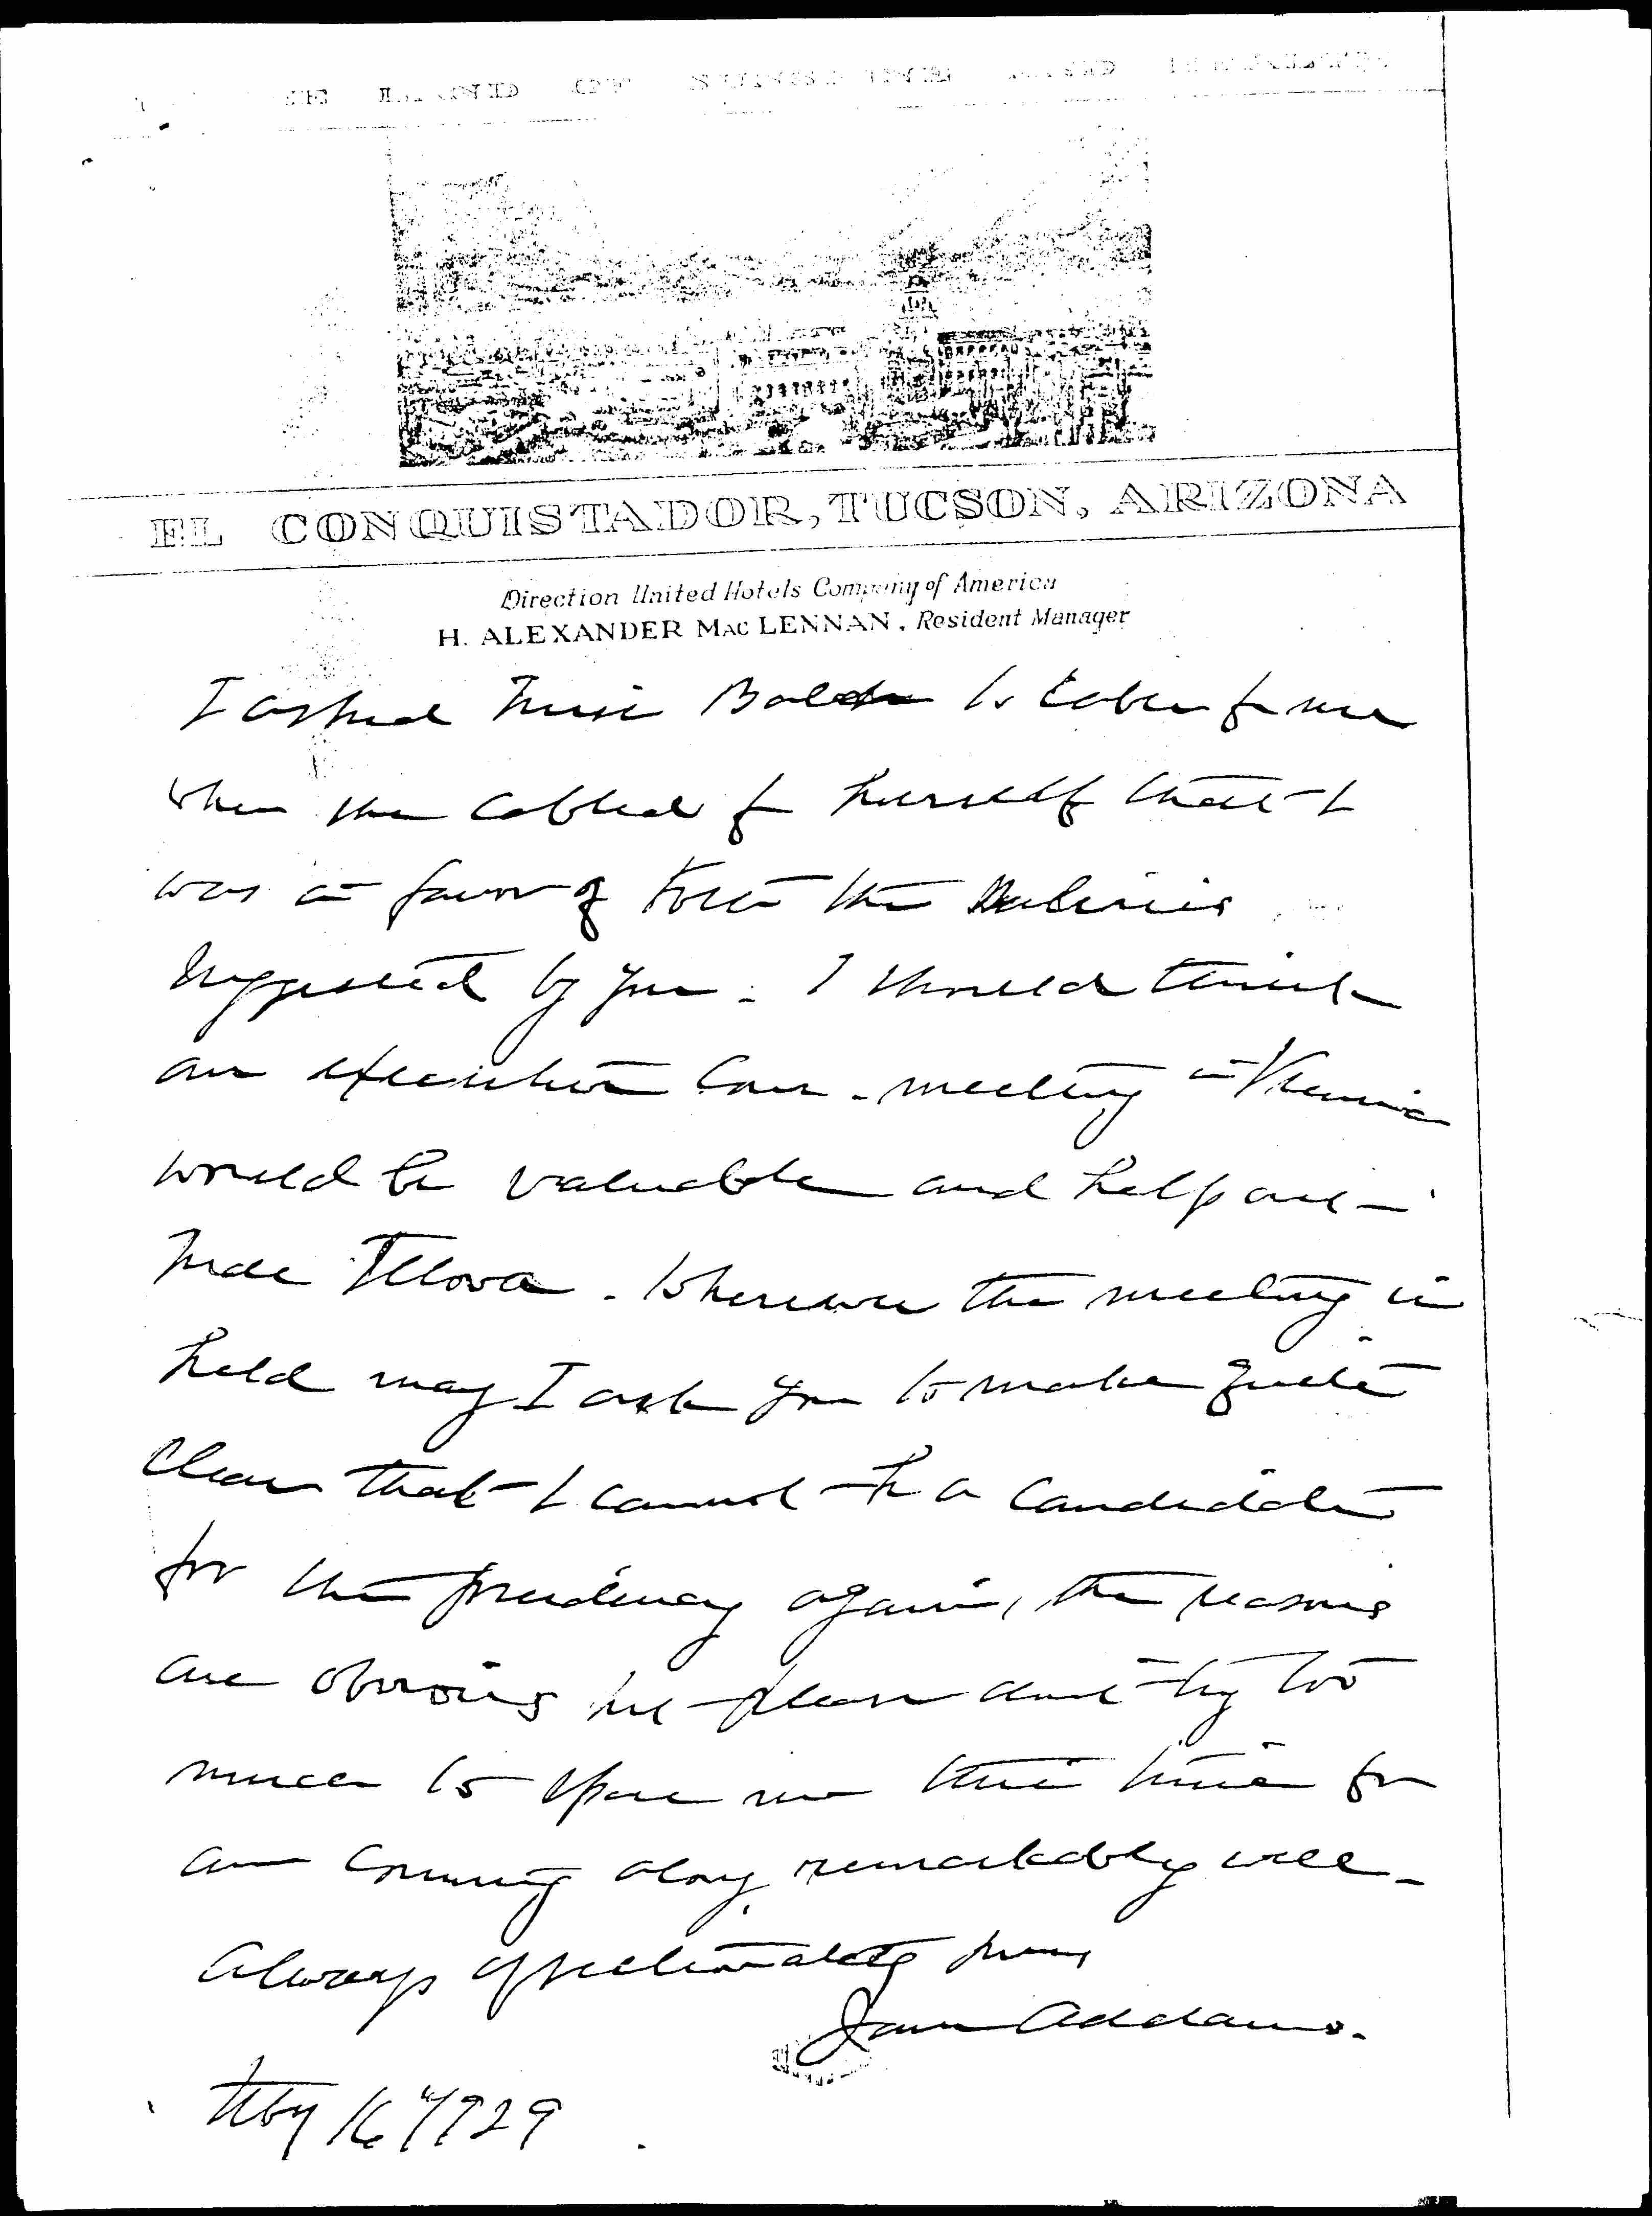 IN THE LAND OF SUNSHINE AND
EL CONQUISTADOR, TUCSON, ARIZONA
Direction United Hotels Company of America
H. ALEXANDER MAC LENNAN, Resident Manager
I asked Miss Balch to cable for me
when she cabled for herself that I
was in favor of both the
suggested by you. I should think
an executive Com. meeting in Vienna
would be valuable and help out —
Mde Illova. Wherever the meeting is
held may I ask you to make quite
clear that I cannot be a candidate
for the presidency again, the reasons
are obvious but please don't try too
much to spare me this time for
am coming along remarkably well —
Always affectionately yours
Jane Addams.
Feby 16" 1929